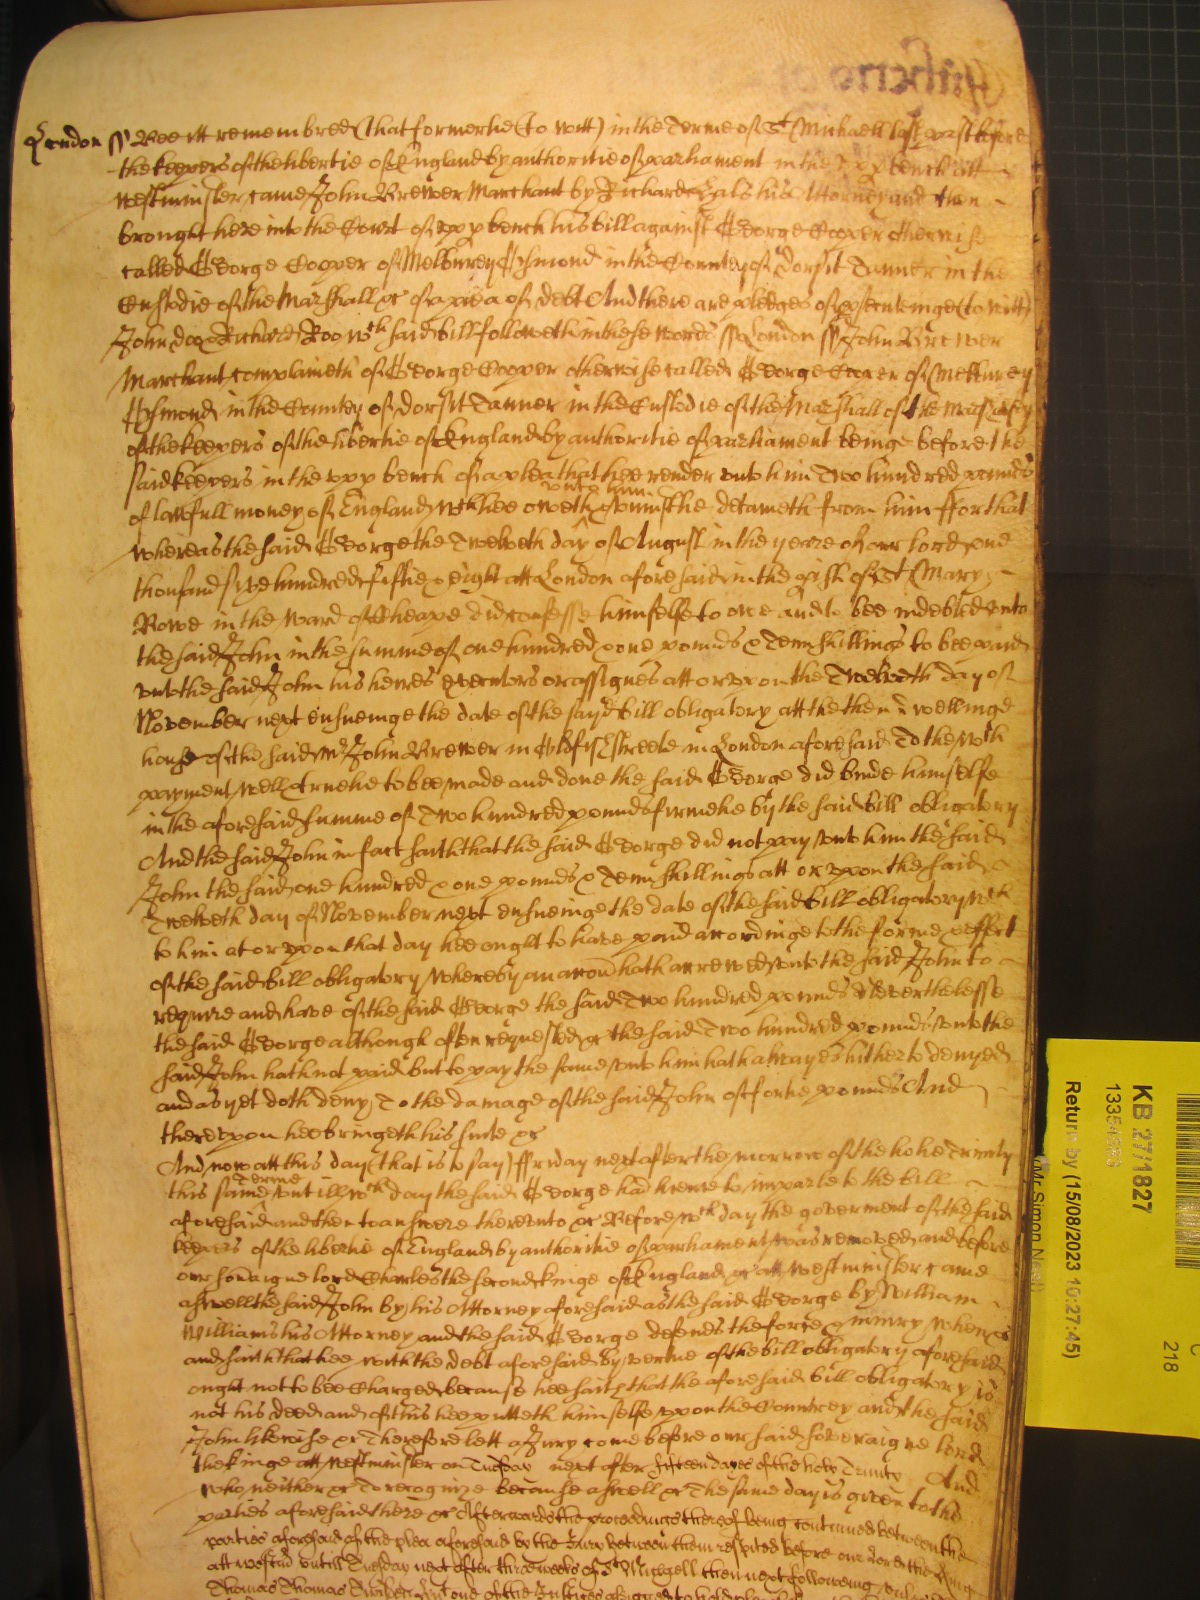 London ss Bee itt remembred (that formerlie (to witt) in the Terme of St Michaell last past before
the keepers of the libertie of England by authoritie of parliament in the upp bench att
Westminster came John Brewer Marchant by Richard his Attorney and then
brought here into the Court of upp bench his bill against George Cooper otherwise
called George Cooper of Melburey Osmond in the Countey of Dorsit Tanner in the
Custodie of the Marshall &c of a plea of debt And there are pledges of prsecutinge (to witt)
John doo & Richard Roo wch said bill followeth in these words ss London ss John Brewer
Marchant complaineth of George Cooper otherwise called George Cooper of Melburey
Osmond in the Countey of Dorsit Tanner in the Custodie of the Marshall of the Marshalsey
of the keepers of the libertie of England by authoritie of parliament beinge before the
said keepers in the upp bench of a plea that hee render unto him Two hundred pounds
of lawfull money of England wch hee oweth unto him & uniustlie detaineth from him ffor that
whereas the said George the Twelveth day of August in the yeare of our lord one
thousand six hundred fiftie & eight att London aforesaid in the pish of St Mary
Bowe in the ward of Cheape did confesse himselfe to owe and to bee indebted unto
the said John in the summe of one hundred & one pounds & Tenn shillings to bee paid
unto the said John his heires executors or assignes att or upon the Twelveth day of
November next ensueinge the date of the sayd bill obligatory att the then dwellinge
house of the said Mr John Brewer in Oldfish streete in London aforesaid To the wch
payment well & truelie to bee made and done the said George did binde himselfe
in the aforesaid summe of Two hundred pounds firmelie by the said bill obligatory
And the said John in fact saith that the said George did not pay unto him the said
John the said one hundred & one pounds & Tenn shillings att or upon the said
Twelveth day of November next ensueinge the date of the said bill obligatory wch
to him at or upon that day hee ought to have paid accordinge to the forme & effect
of the said bill obligatory whereby an accon hath accrewed unto the said John to
require and have of the said George the said Two hundred pounds Neverthelesse
the said George although often requested &c the said Two hundred pounds unto the
said John hath not paid but to pay the same unto him hath alwayes hitherto denyed
and as yet doth deny To the damage of the said John of fortie pounds And
thereupon hee bringeth his suite &c
And now att this day (that is to say) ffriday next after the morrow of the holie Trinity
this same Terme untill wch day the said George had licence to imparle to the bill
aforesaid and then to answere thereunto &c Before wch day the goverment of the said
keepers of the libertie of England by authoritie of parliament was removed and before
our soveraigne lord Charles the second kinge of England &c att Westminister came
aswell the said John by his Attorney aforesaid as the said George by William
Williams his Attorney and the said George defends the force & iniury when &c
and saith that hee with the debt aforesaid by vertue of the bill obligatory aforesaid
ought not to bee Charged because hee saith that the aforesaid bill obligatory is
not his deed and of this hee putteth himselfe upon the Countrey and the said
John likewise &c Therefore lett a Jury come before our said soveraigne lord
the kinge att Westminister on Tuesday next after fifteen dayes of the holy Trinity And
who neither &c To recognize because aswell &c The same day is given to the
parties aforesaid there &c Afterwards the proceedings thereof being continued between the
parties aforesaid of the plea aforesaid by the Jury between them respited before our Lord the King
att Westmr untill Tuesday next after three weekes of St Michaell then next followeing
Thomas one of the Justices assigned to
KB 27/1827
Return by (15/08/2023 10:27:45)
218